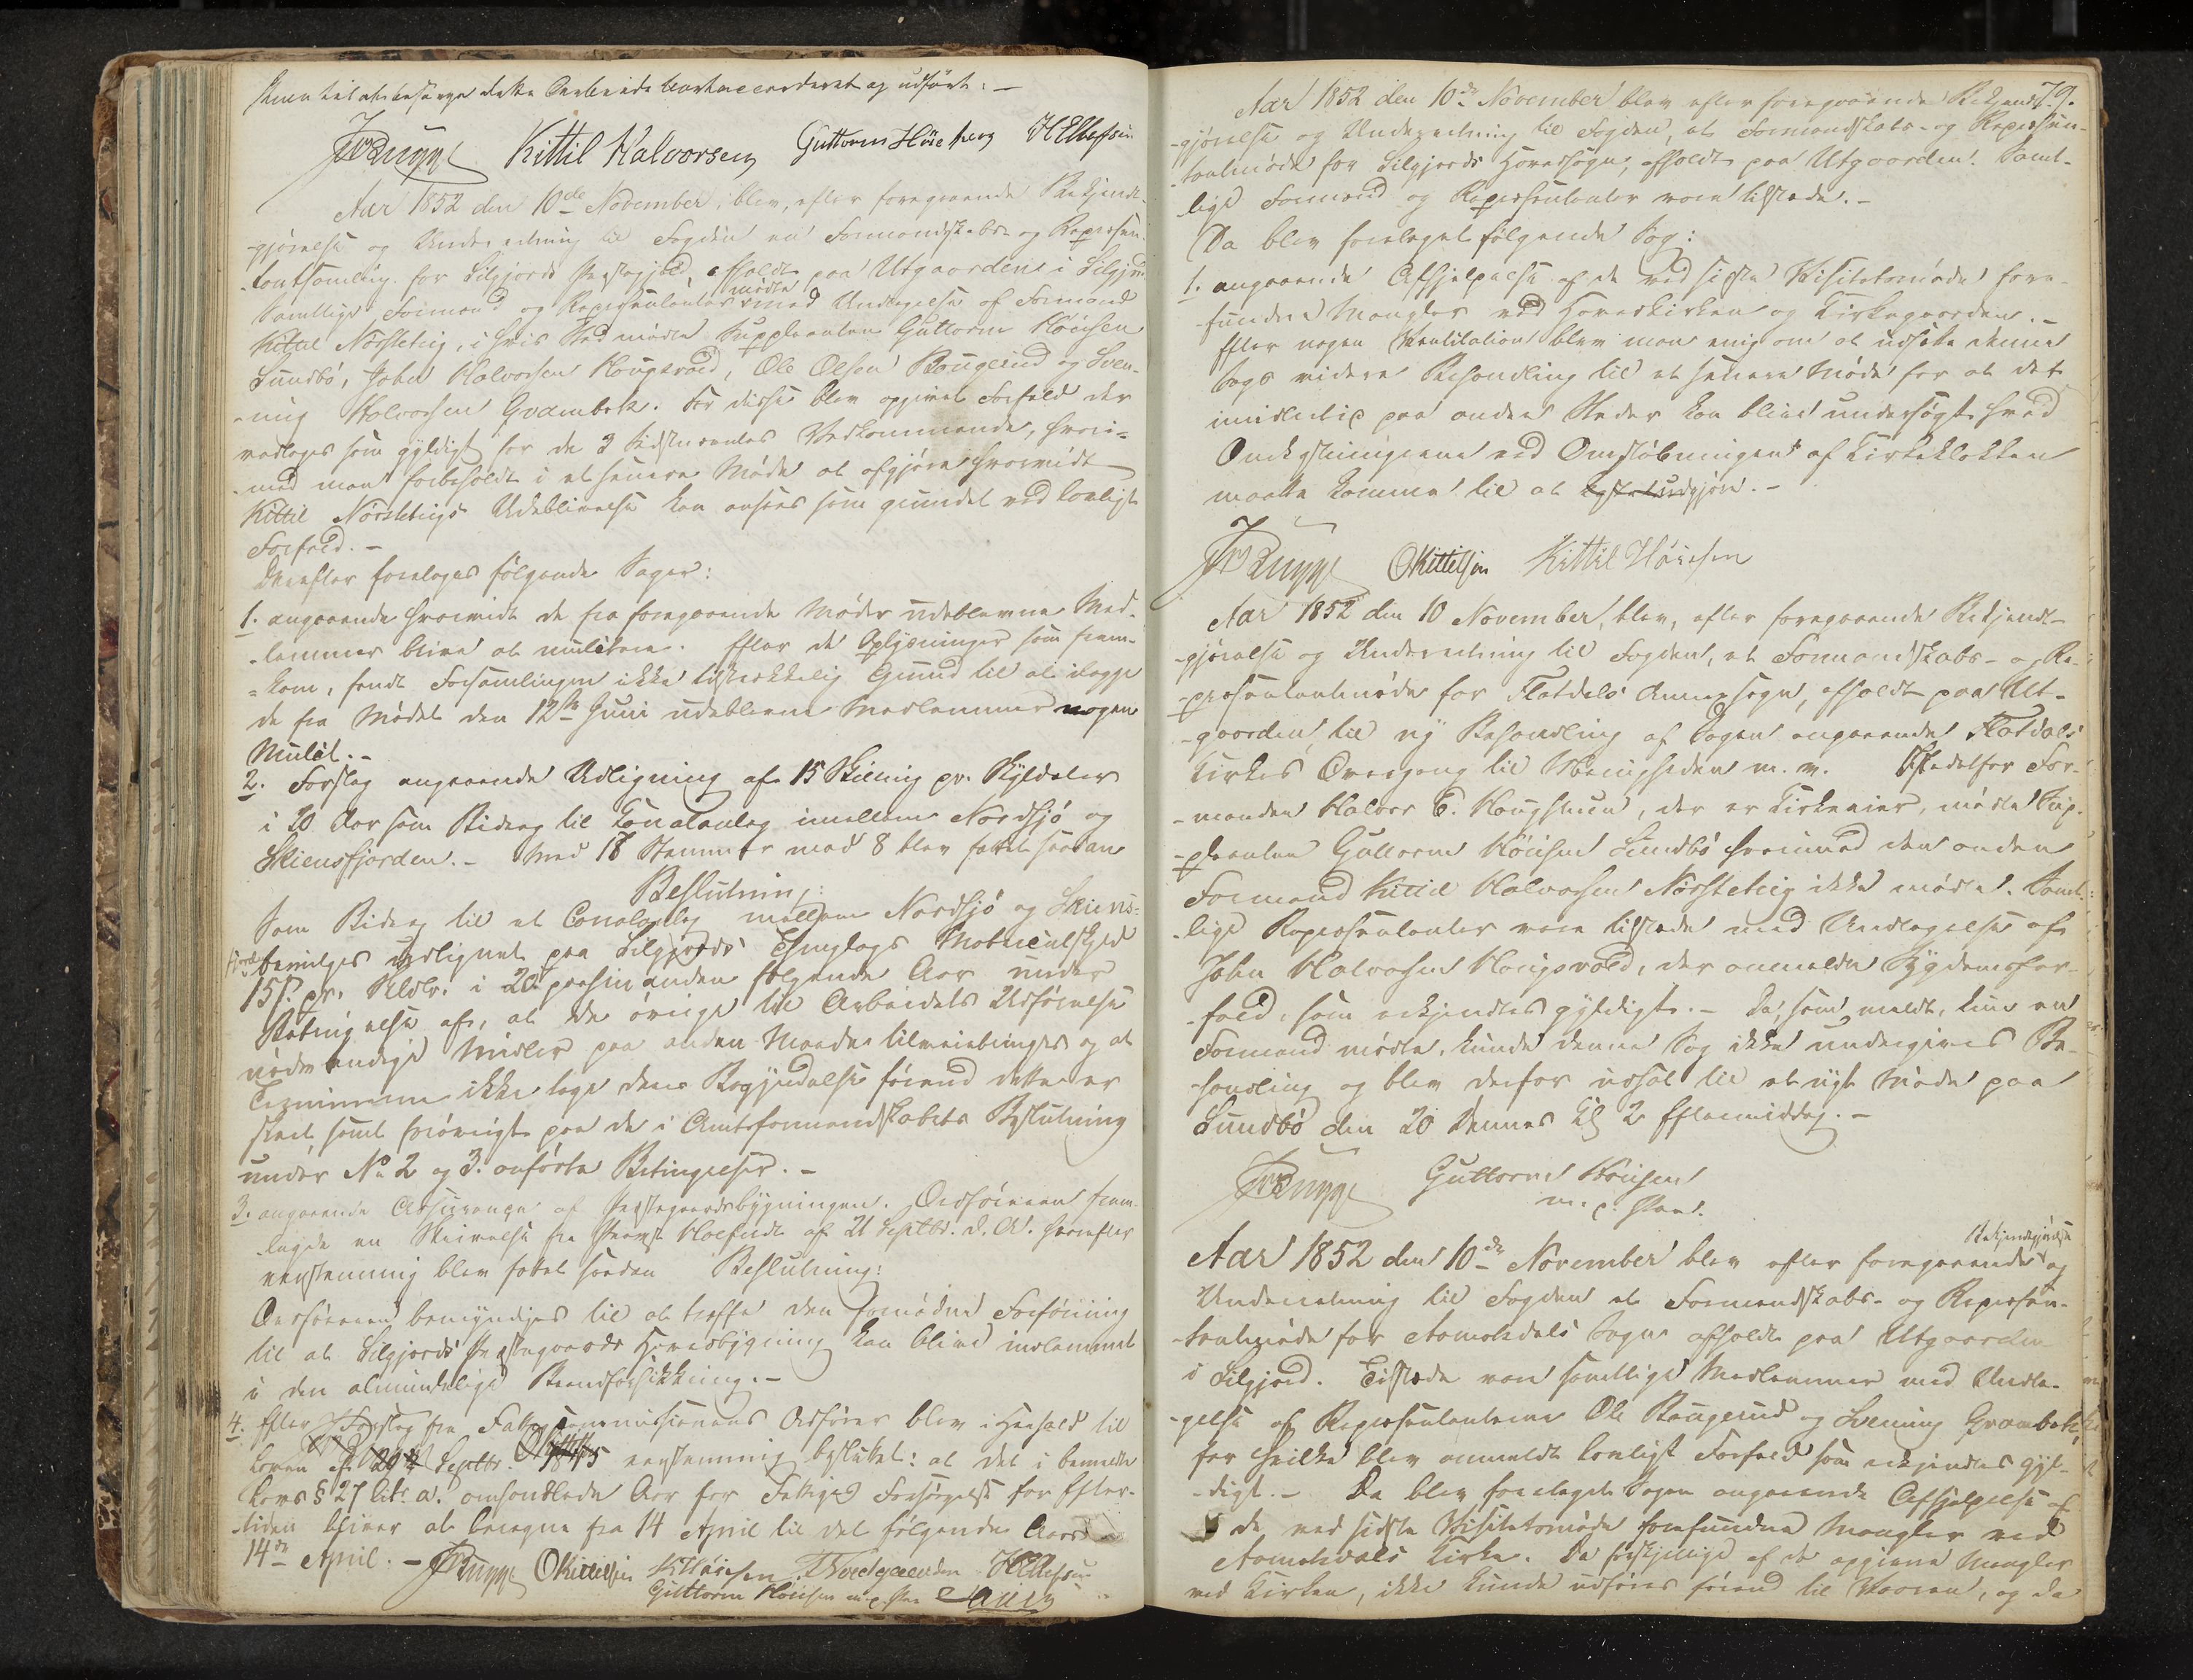 til at besørge dette Arbeide bortaccorderet og udført: –
JWBugge Kittil Halvorsen Guttorm Høisesen HEllefsen
Aar 1852 den 10de November, blev, efter foregaaende Bekjendt-
-gjørelse og Underretning til Fogden en Formandskabs- og Repræsen-
-tantsamling for Silgjords Præstegjeld, afholdt paa Utgaardene i Silgjord.
Samtlige Formænd og Repræsentanter mødte med Undtagelse af Formand
Kittil Nørsteby, i hvis Sted mødte Suppleanten Guttorm Høisesen
Sundbø, John Halvorsen Haugsvold, Ole Olsen Baugerud og Sven-
-nug Halvorsen Qvambek. For disse blev opgivet Forfald der
modtoges som gyldigt for de 3 sidstnævntes Vedkommende, hvori-
-mod man forbeholdt i et senere Møde at afgjøre hvorvidt
Kittil Nørstebys Udeblivelse kan ansees som grundet ved lovligt
Forfald. –
Derefter foretoges følgende Sager:
1. angaaende hvorvidt de fra foregaaende Møder udeblevne Med-
-lemmer blive at mulctere. Efter de Oplysninger som frem-
-kom, fandt Forsamlingen ikke tilstrekkelig Grund til at ilægge
de fra Mødet den 12te Juni udeblevne Medlemmer nogen
Mulct. –
2. Forslag angaaende Udligning af 15 Skilling pr. Skyldaler
i 20 Aar som Bidrag til Canalanlæg imellem Nordsjø og
Skiensfjorden. – Med 18 Stemmer mod 8 blev fattet saadan
Beslutning:
Som Bidrag til et Canalanlæg mellem Nordsjø og Skiens-
fjord bevilges udlignet paa Silgjords Thinglags Matriculskyld
15 s. pr. Skldr. i 20 paa hinanden følgende Aar under
Betingelse af, at de øvrige til Arbeidets Udførelse
nødvendige Midler paa anden Maade tilveiebringes og at
Terminerne ikke tage deres Begyndelse førend dette er
skeet samt forøvrigt paa de i Amtsformandskabets Beslutning
under No 2 og 3. anførte Betingelser. –
3. angaaende Assurance af Præstegaardsbygningen. Ordføreren frem-
-lagde en Skrivelse fra Provst af 21 Septbr. d. A. hvorefter
eenstemmig blev fattet saadan Beslutning:
Ordføreren bemyndiges til at træffe den fornødne Forføining
til at Silgjords Præstegaards Hovedbygning kan blive indlemmet
i den almindelige Brandforsikkring. –
4. Efter Forslag fra Fattigcommissionens Ordfører blev i Henhold til
Loven af 20de Septbr. 1845 eenstemmig besluttet: at det i bemeldte
Lovs § 27 litr. a. omhandlede Aar for Fattiges Forsørgelse for Efter-
-tiden bliver at beregne fra 14 April til det følgende Aars
14de April. – JWBugge OKittilsen KHøisesen HEllefsen
Guttorm Høisesen m. p. Pen
79.
Aar 1852 den 10de November blev efter foregaaende Bekjendt-
-gjørelse og Underretning til Fogden, et Formandskabs- og Repræsen-
-tantmøde for Silgjords Hovedsogn, afholdt paa Utgaarden. Samt-
-lige Formænd og Repræsentanter vare tilstede. –
Da blev foretaget følgende Sag:
1. angaaende Afhjelpelse af de ved sidste Visitatsmøde fore-
-fundne Mangler ved Hovedkirken og Kirkegaarden. –
Efter nogen Ventilation blev man enig om at udsætte denne
Sags videre Behandling til et senere Møde for at det
imidlertid paa andre Steder kan blive undersøgt hvad
Omkostningerne ved Omstøbningen af Kirkeklokken
maatte komme til at udgjøre. –
JWBugge OKittilsen Kittil Høisesen
Aar 1852 den 10 November, blev, efter foregaaende Bekjendt-
-gjørelse og Underretning til Fogden, et Formandskabs- og Re-
-præsentantmøde for Flatdals Annexsogn, afholdt paa Ut-
-gaarden, til ny Behandling af Sagen angaaende Flatdals
Kirkes Overgang til Menigheden m. v. Istedetfor For-
-manden Halvor T. Haugstuen, der er Kirkeeier, mødte Sup-
-pleanten Guttorm Høisesen Sundbø hvorimod den anden
Formand Kittil Halvorsen Nørsteby ikke mødte. Samt-
-lige Repræsentanter vare tilstede med Undtagelse af
John Halvorsen Haugsvold, der anmeldte Sygdomsfor-
-fald, som erkjendtes gyldigt. – Da, som meldt, kun en
Formand mødte, kunde denne Sag ikke undergives Be-
-handling og blev derfor udsat til et nyt Møde paa
Sundbø den 20 dennes Kl 2 Eftermiddag. –
JWBugge Guttorm Høisesen
m. p. Pen.
Aar 1852 den 10de November blev efter foregaaende Bekjendtgjørelse og
Underretning til Fogden et Formandskabs- og Repræsen-
-tantmøde for Aamotsdals Sogn afholdt paa Utgaarden
i Silgjord. Tilstede vare samtlige Medlemmer med Undta-
-gelse af Repræsentanterne Ole Baugerud og Svennug Qvambek,
for hvilke blev anmeldt lovligt Forfald som erkjendtes gyl-
-digt. – Da blev foretaget Sagen angaaende Afhjelpelse af
de ved sidste Visitatsmøde forefundne Mangler ved
Aamotsdals Kirke. Da forskjellige af de opgivne Mangler
ved Kirken, ikke kunde udføres førend til Vaaren, og da